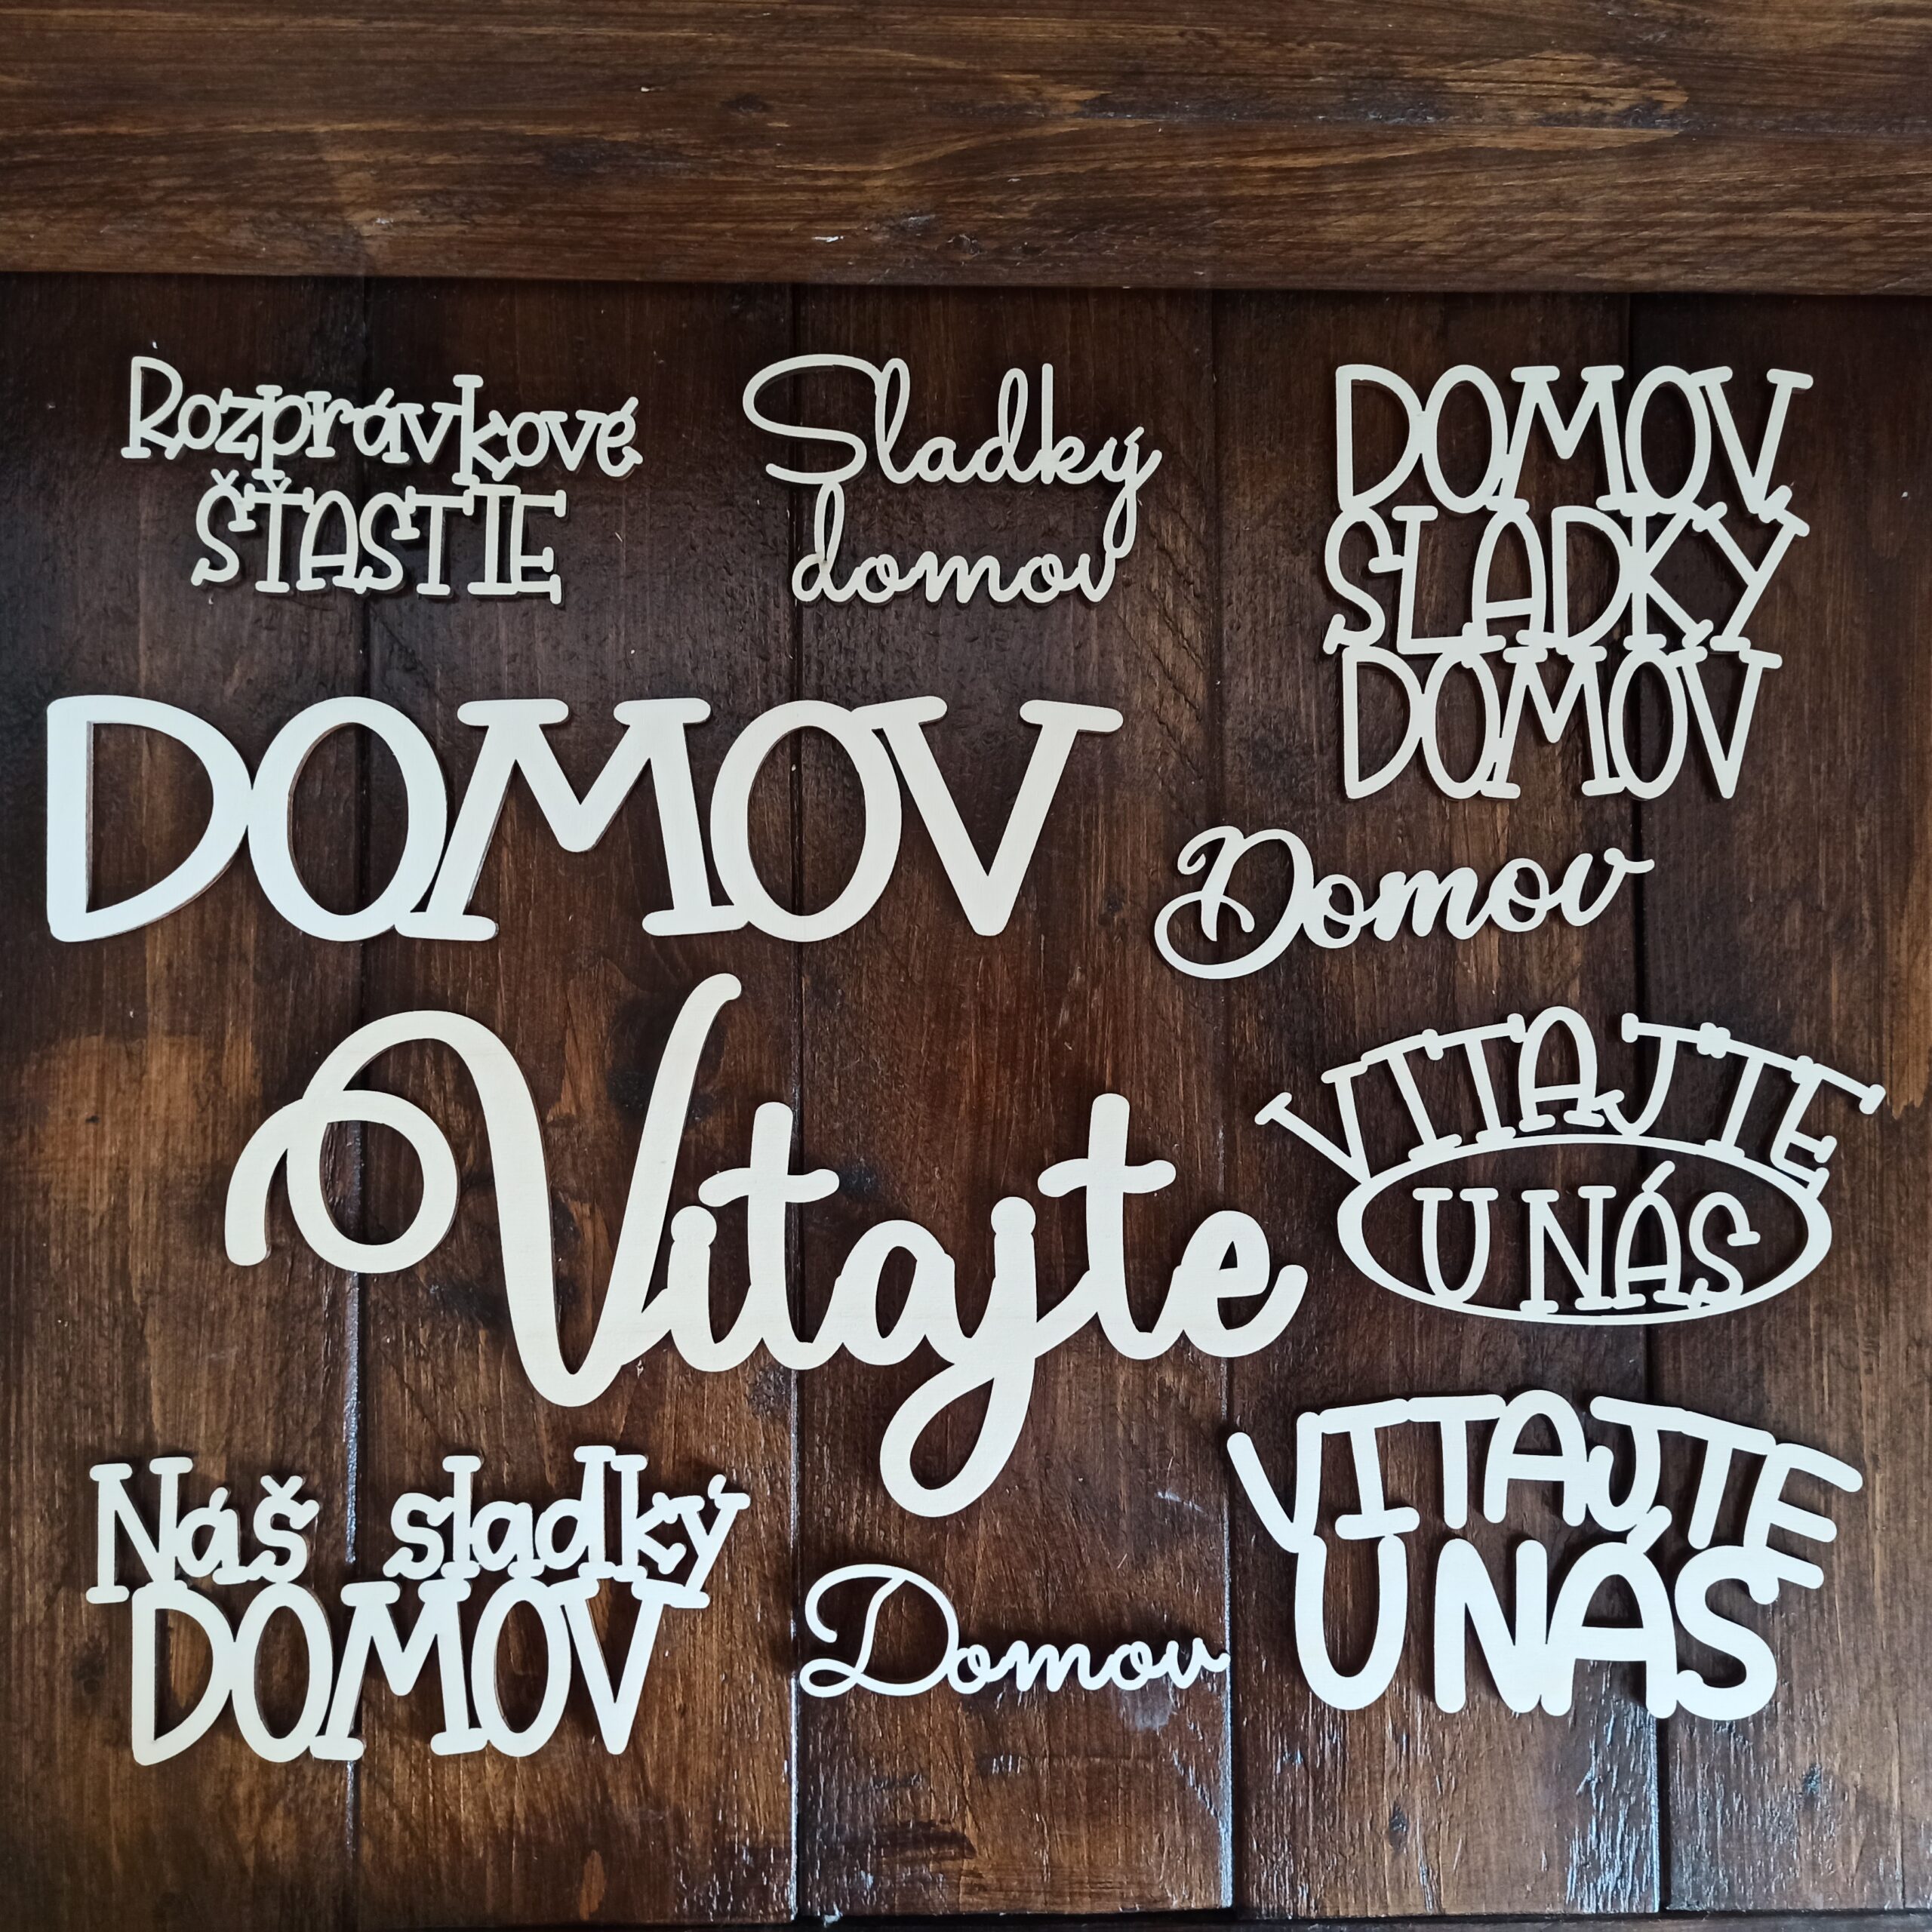 Rozprávkové
ŠŤASTIE
Sladký
domov
DOMOV
SLADKÝ
DOMOV
DOMOV
Domov
Vitajte
VITAJTE
U NÁS
Náš sladký
DOMOV
Domov
VITAJTE
U NÁS